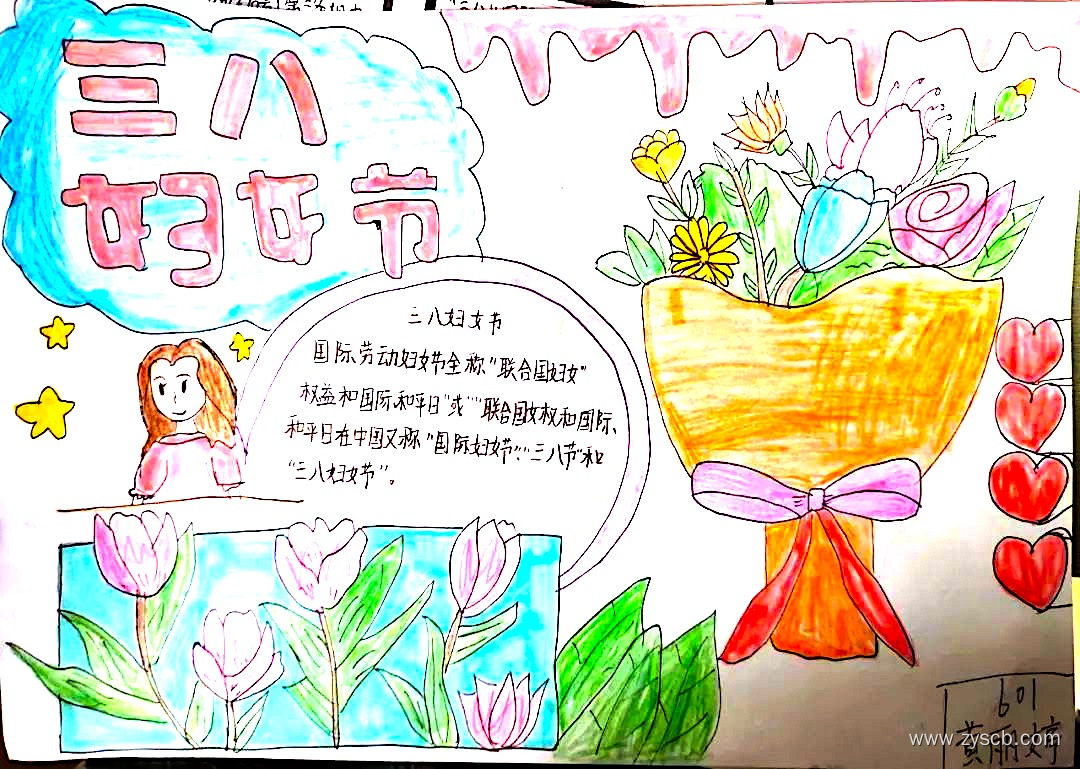 三八
妇女节
三八妇女节
国际劳动妇女节全称"联合国妇女
权益和国际和平日"或""联合国女权和国际
和平日在中国又称"国际妇女节"、"三八节"和
"三八妇女节"。
601
黄丽婷
www.zyscb.com